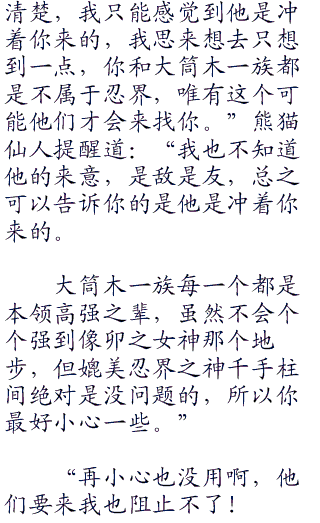 清楚，我只能感觉到他是冲
着你来的，我思来想去只想
到一点，你和大筒木一族都
是不属于忍界，唯有这个可
能他们才会来找你。”熊猫
仙人提醒道：“我也不知道
他的来意，是敌是友，总之
可以告诉你的是他是冲着你
来的。
大筒木一族每一个都是
本领高强之辈，虽然不会个
个强到像卯之女神那个地
步，但媲美忍界之神千手柱
间绝对是没问题的，所以你
最好小心一些。”
“再小心也没用啊，他
们要来我也阻止不了！